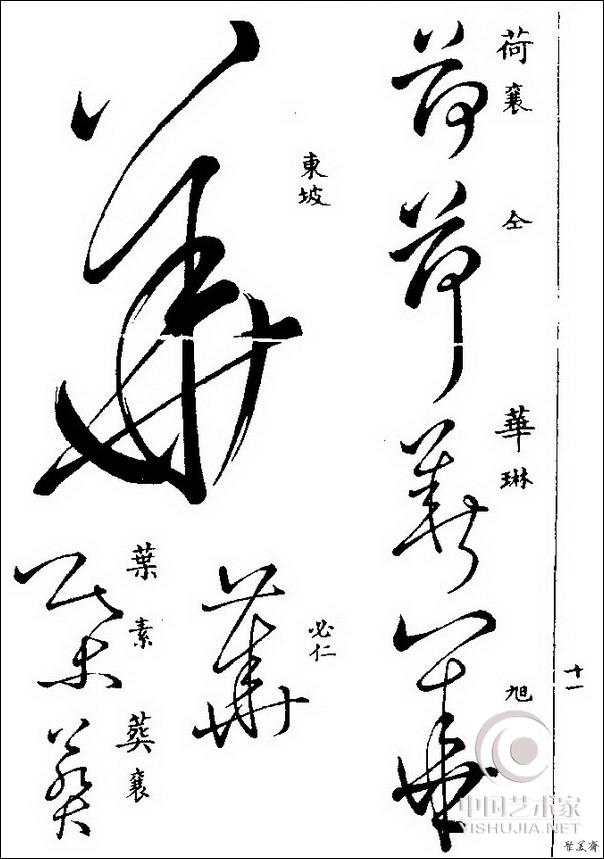 荷 襄
仝
華 琳
旭
東坡
必仁
葉 素
葵 襄
十一
中国艺术家
YISHUJIA.NET